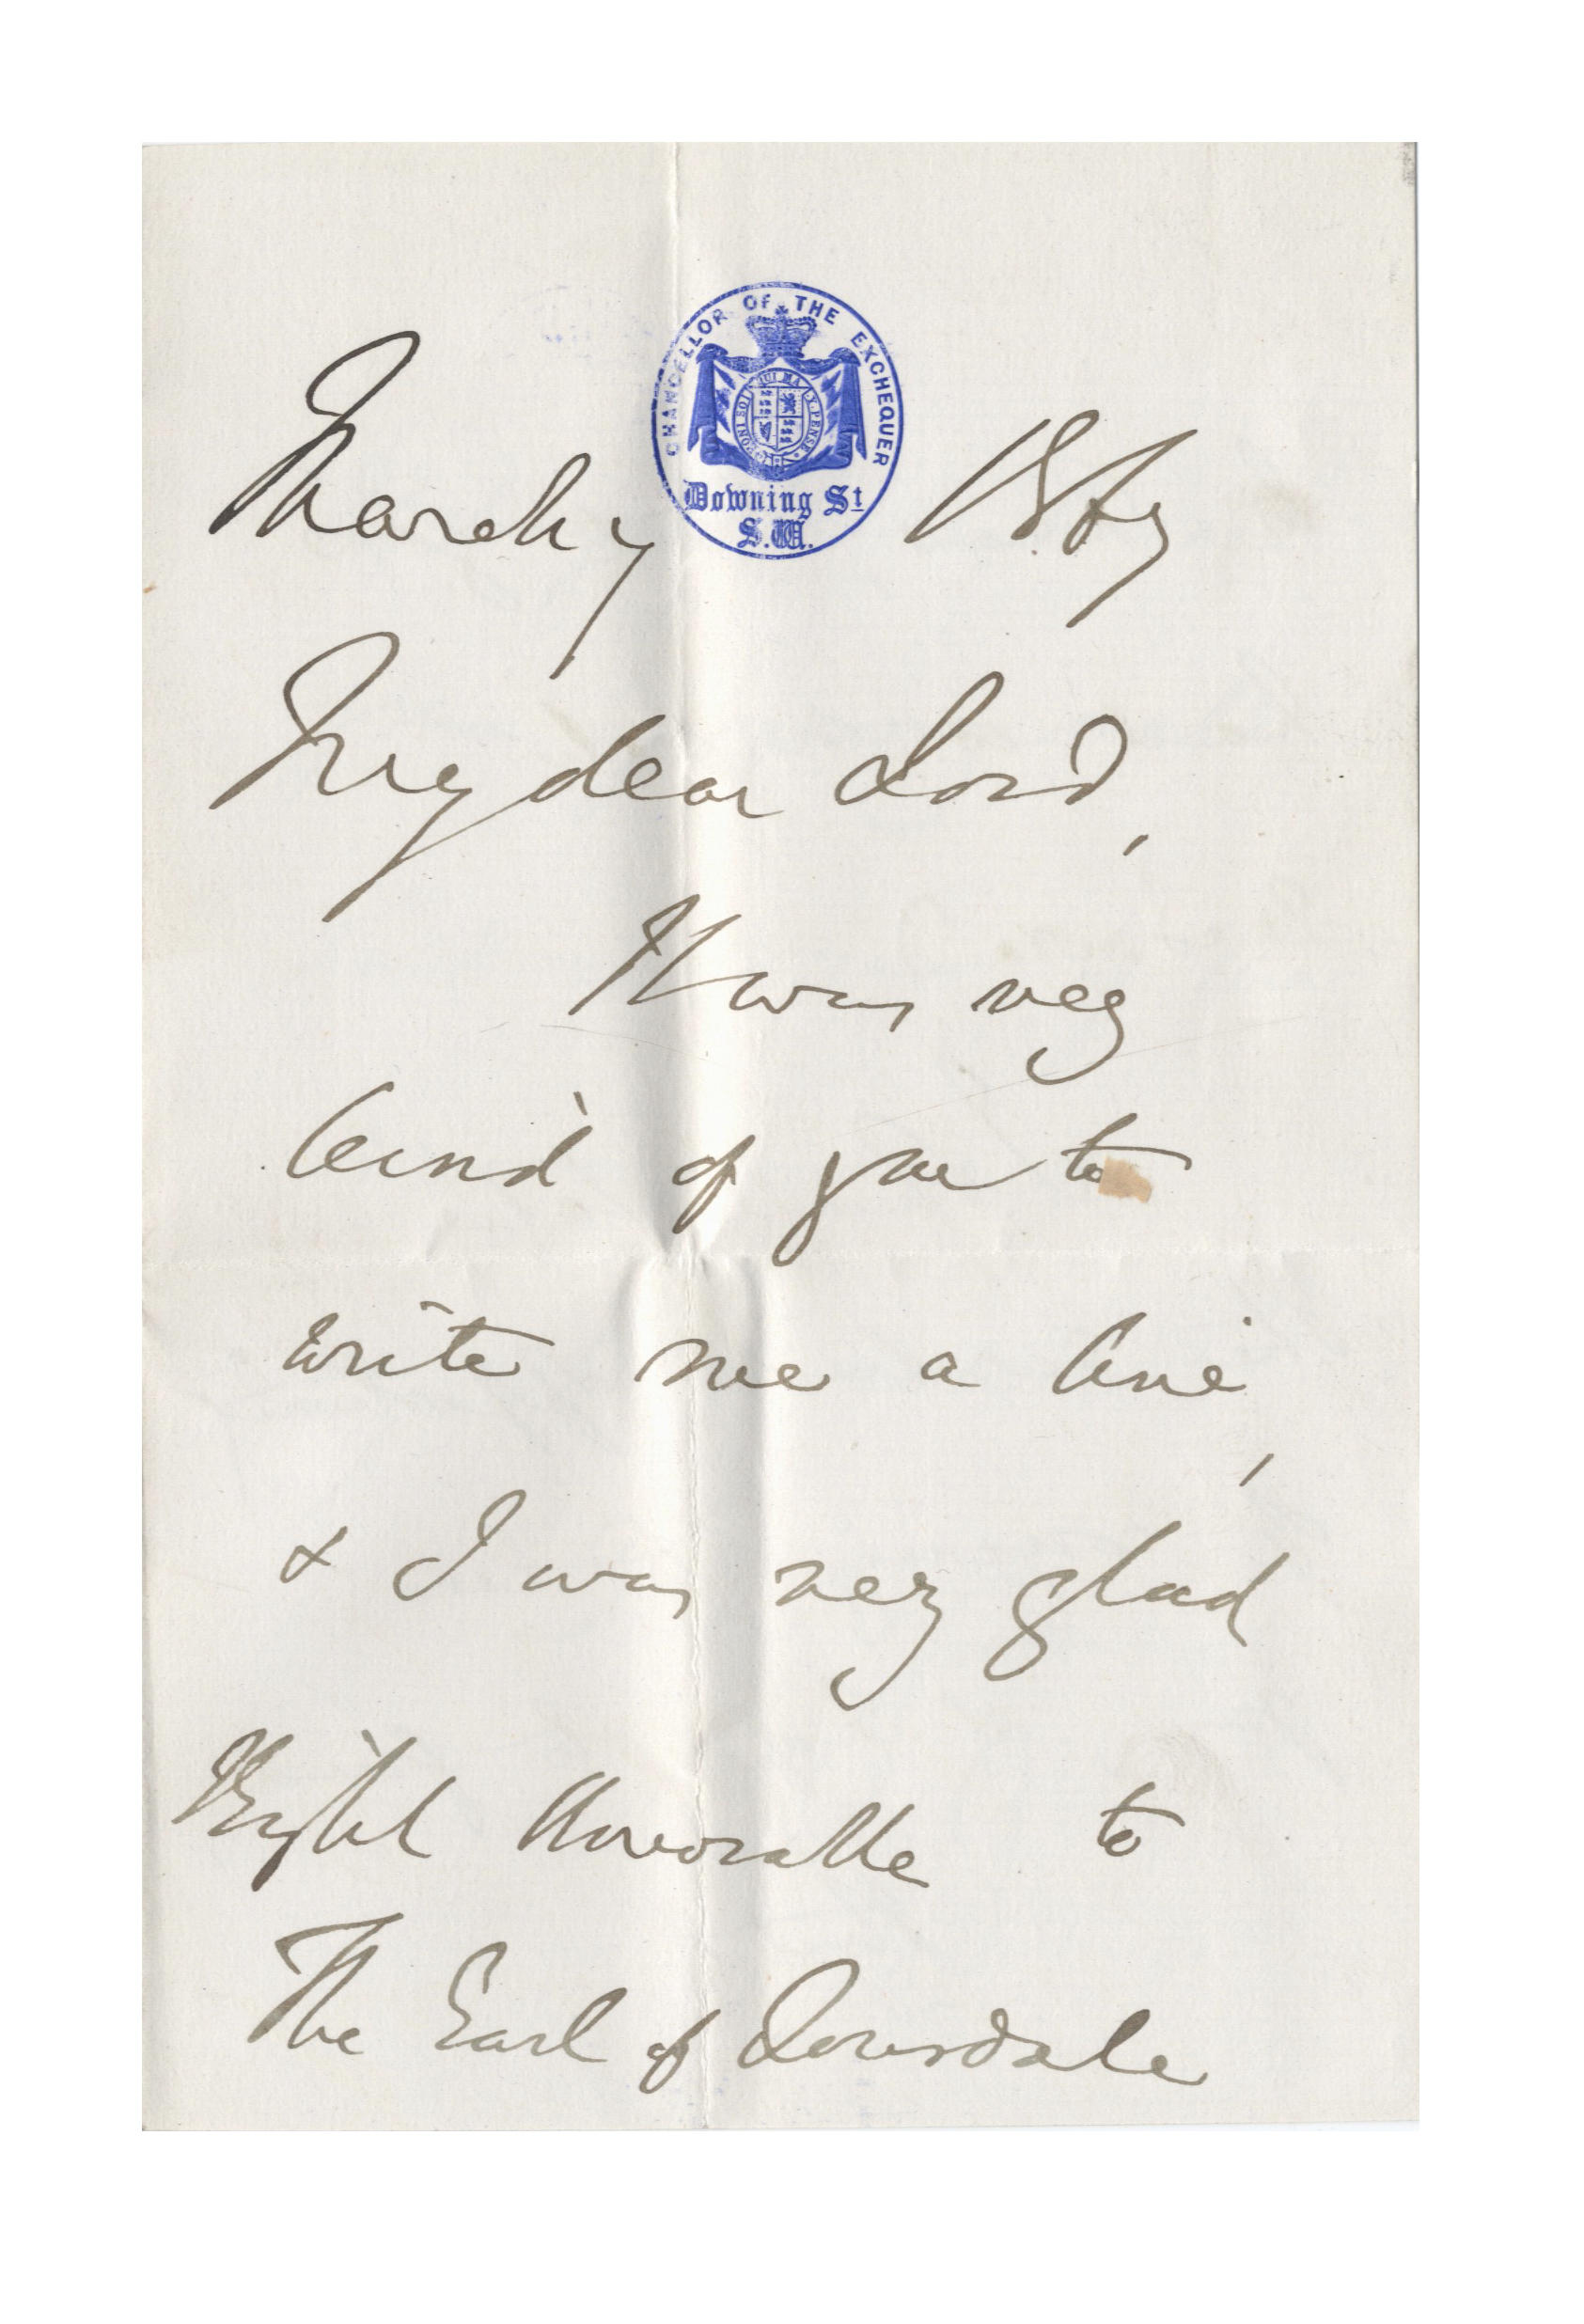 CHANCELLOR OF THE EXCHEQUER
Downing St
S.W.
March 7
My dear Lord,
It was very
kind of you to
write me a line,
& I was very glad
Right Honorable to
The Earl of Lonsdale